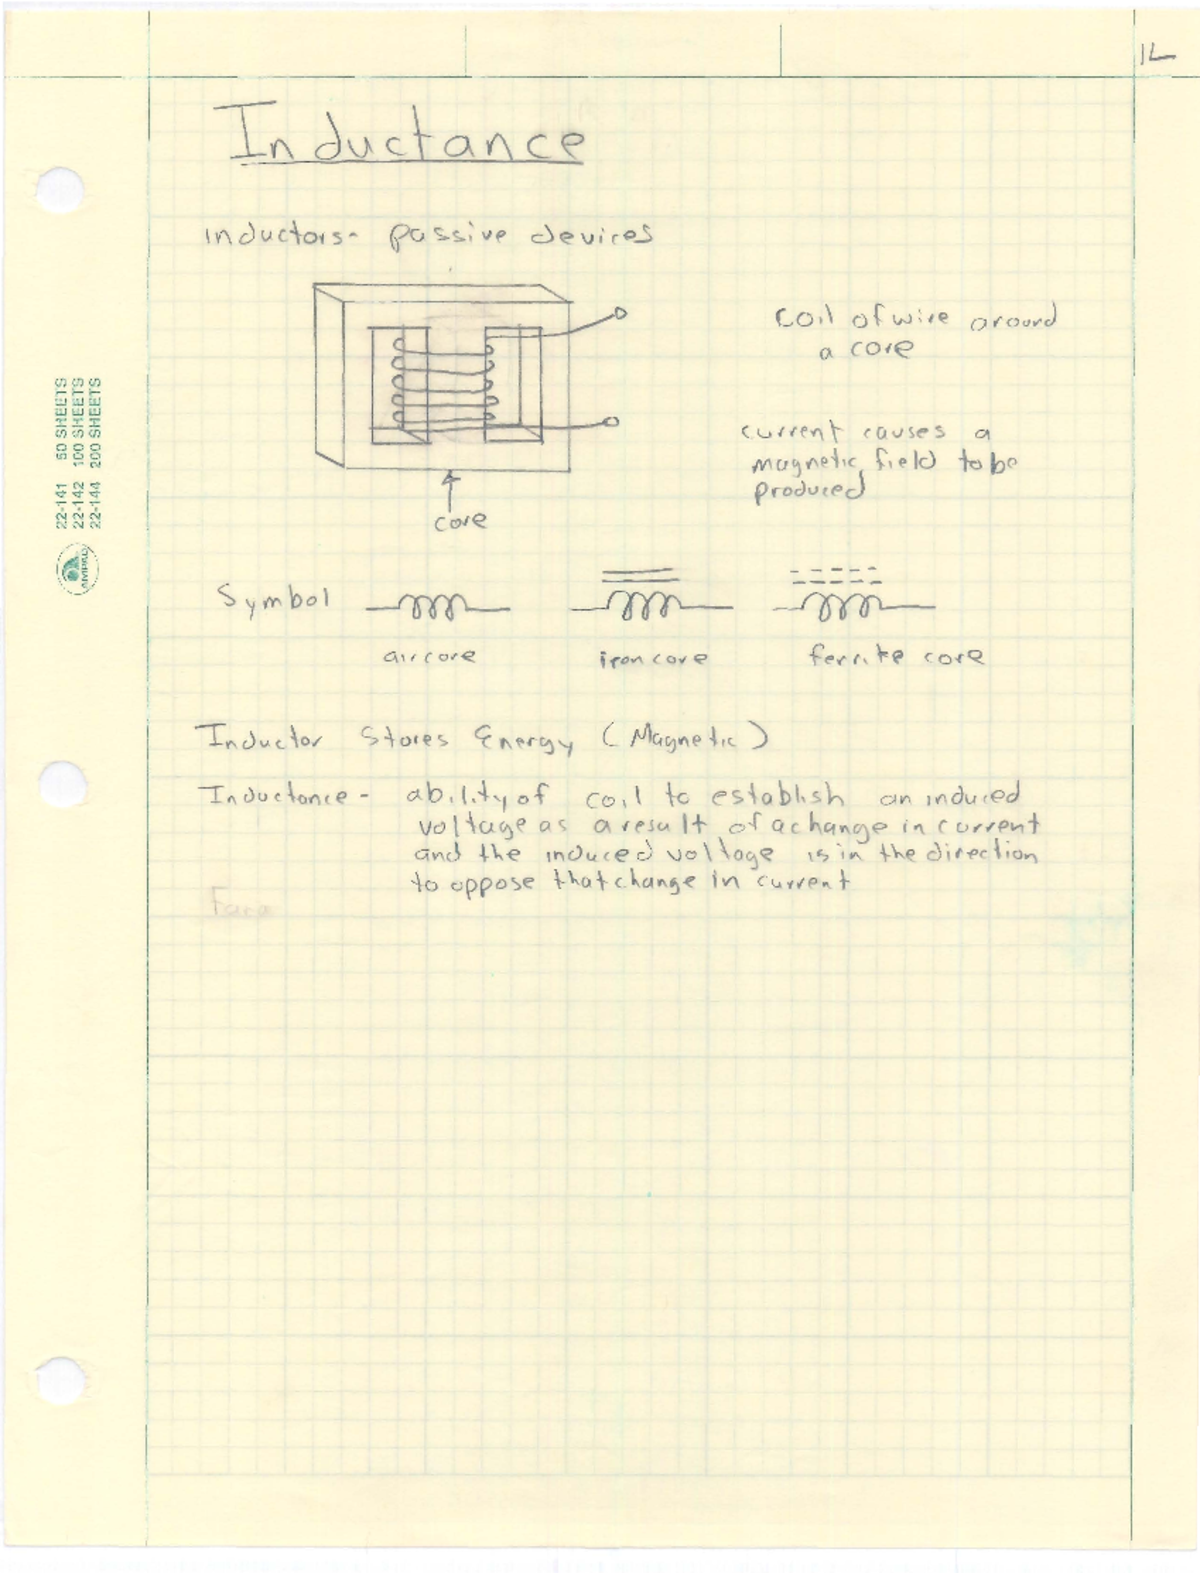 1L
Inductance
inductors- passive devices
coil of wire around
a core
current causes a
magnetic field to be
produced
core
22-141 50 SHEETS
22-142 100 SHEETS
22-144 200 SHEETS
AMPAD
Symbol
air core
iron core
ferrite core
Inductor Stores Energy (Magnetic)
Inductance - ability of coil to establish an induced
voltage as a result of a change in current
and the induced voltage is in the direction
to oppose that change in current
Fara